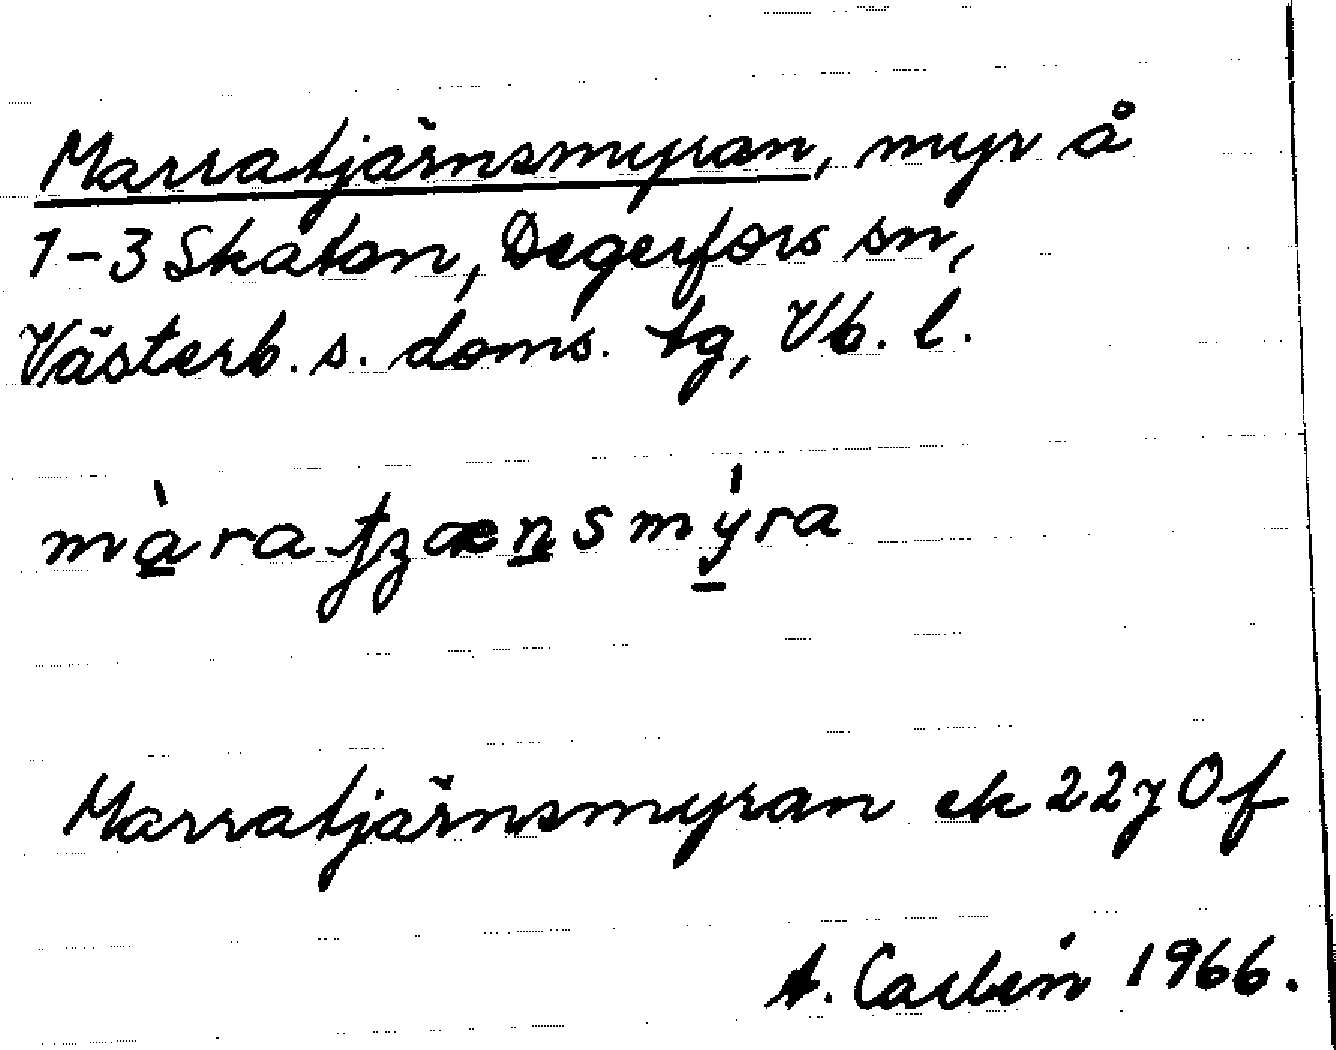 Marratjärnsmyran, myr å
1-3 Skatan, Degerfors sn,
Västerb. s. doms. tg, Vb. l.
màratʃʒænsmýra
Marratjärnsmyran ek 22J 0f
A. Carbin 1966.